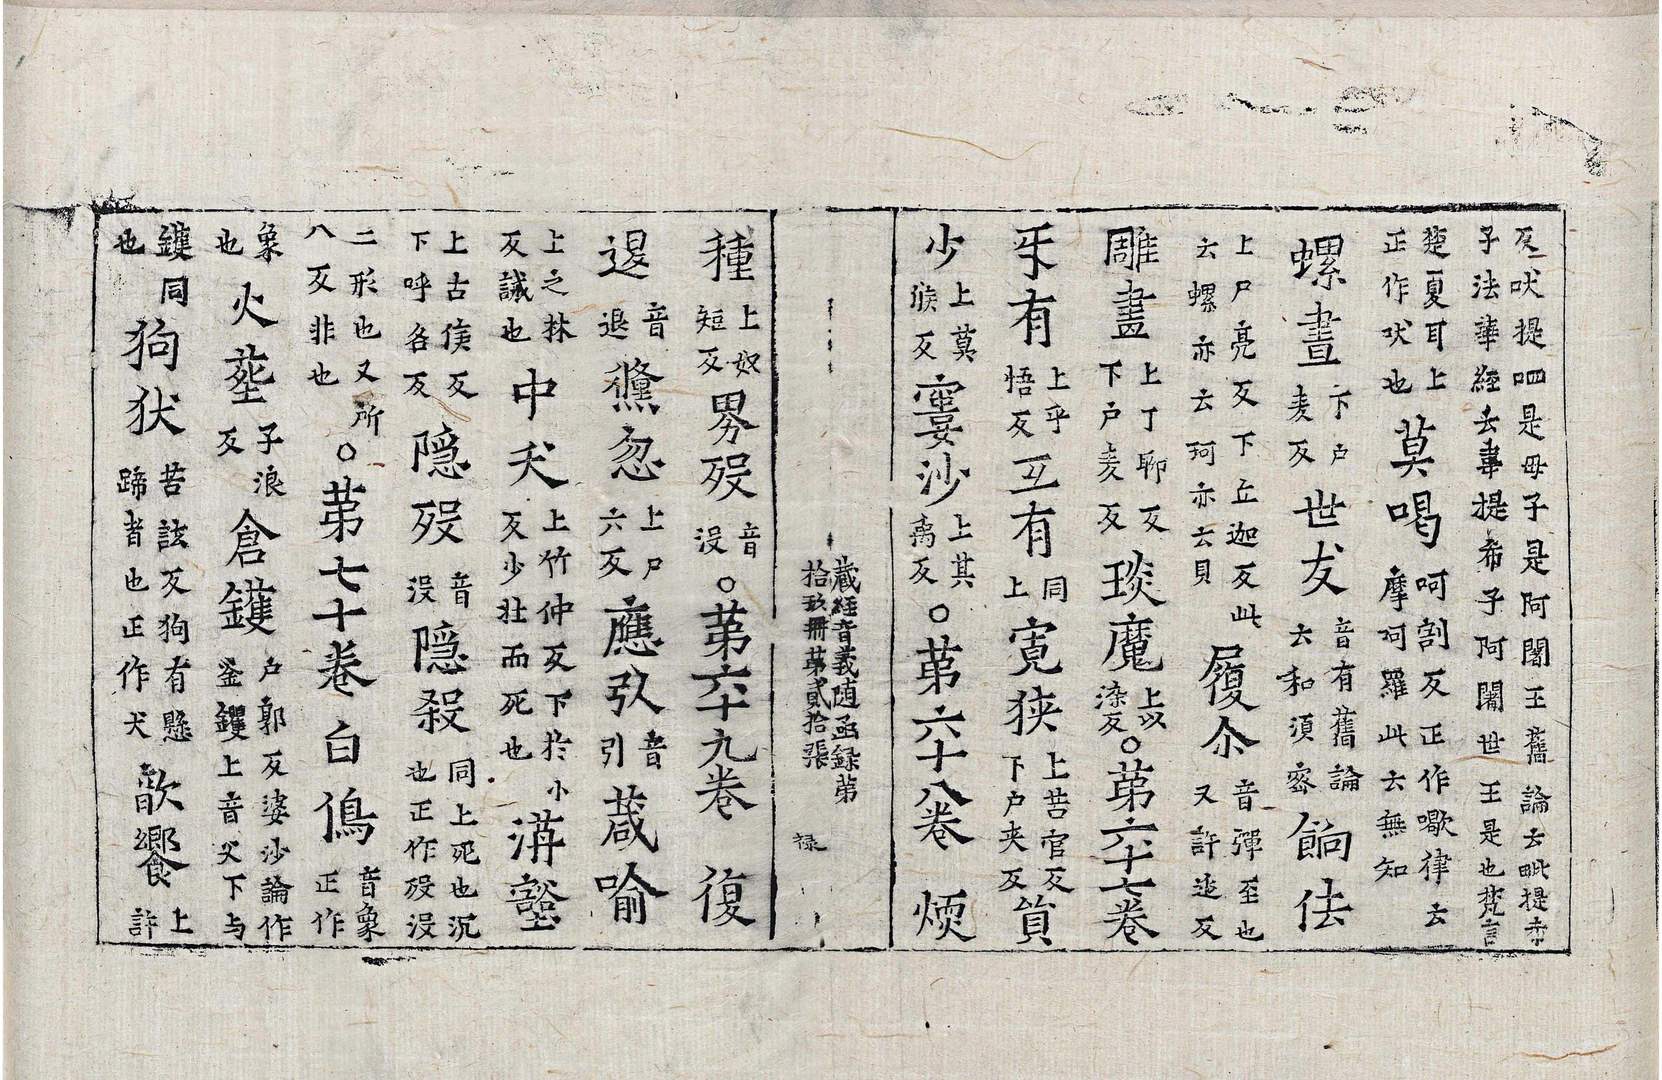 反吠提呬是母子是阿闍王舊論云毗提末
子法華經云韋提希子阿闍世王是也梵言
楚夏耳上正作吠也莫喝呵割反正作歇律云摩呵羅此云無知
螺畫下户麦反世友音有舊論云和須蜜餉佉
上尸亮反下丘迦反此云螺亦云珂亦云貝履尒音彌至也又許迩反
雕畫上丁聊反下户麦反琰魔上以染反○苐六十七卷
牙有上乎悟反互有同上寛狭上苦官反下户夹反質
少上莫猴反窶沙上其禹反○苐六十八卷 煗
藏經音義随函録苐
拾玖冊苐貳拾張 禄
種上奴短反界歿音没○苐六十九卷 復
退音退儵忽上尸六反應引音引葴喻
上之林反諴也中夭上竹仲反下於小反少壮而死也溝壑
上古侯反下呼各反隠歿音没隠殺同上死也沉也正作歿没
二形也又所八反非也○苐七十卷 白㒟音象正作
象也火塟子浪反倉鑊户郭反婆沙論作釜鑊上音父下与
鑊同也狗狄苦該反狗有懸蹄者也正作犬歆饗上許